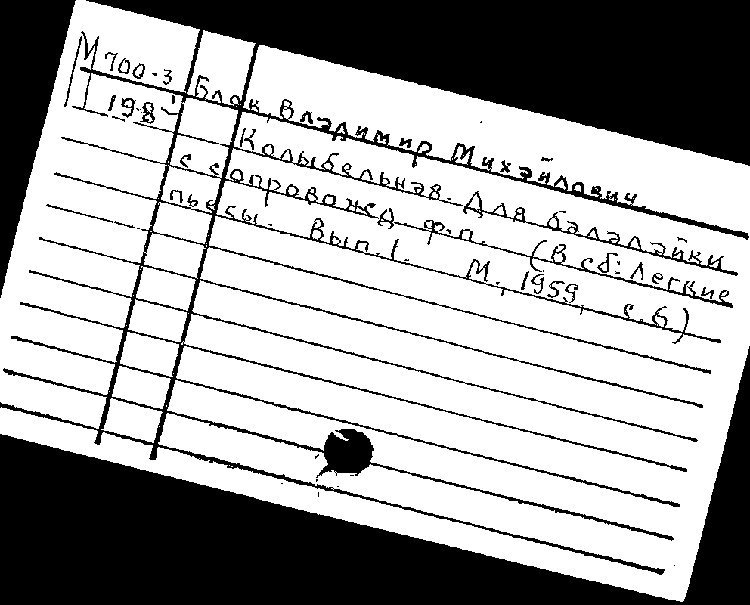 М700-3 Блок, Владимир Михайлович.
198 Колыбельная. Для балалайки
с сопровожд. ф.п. (В сб: Легкие
пьесы. Вып. 1. М., 1959, с. 6)